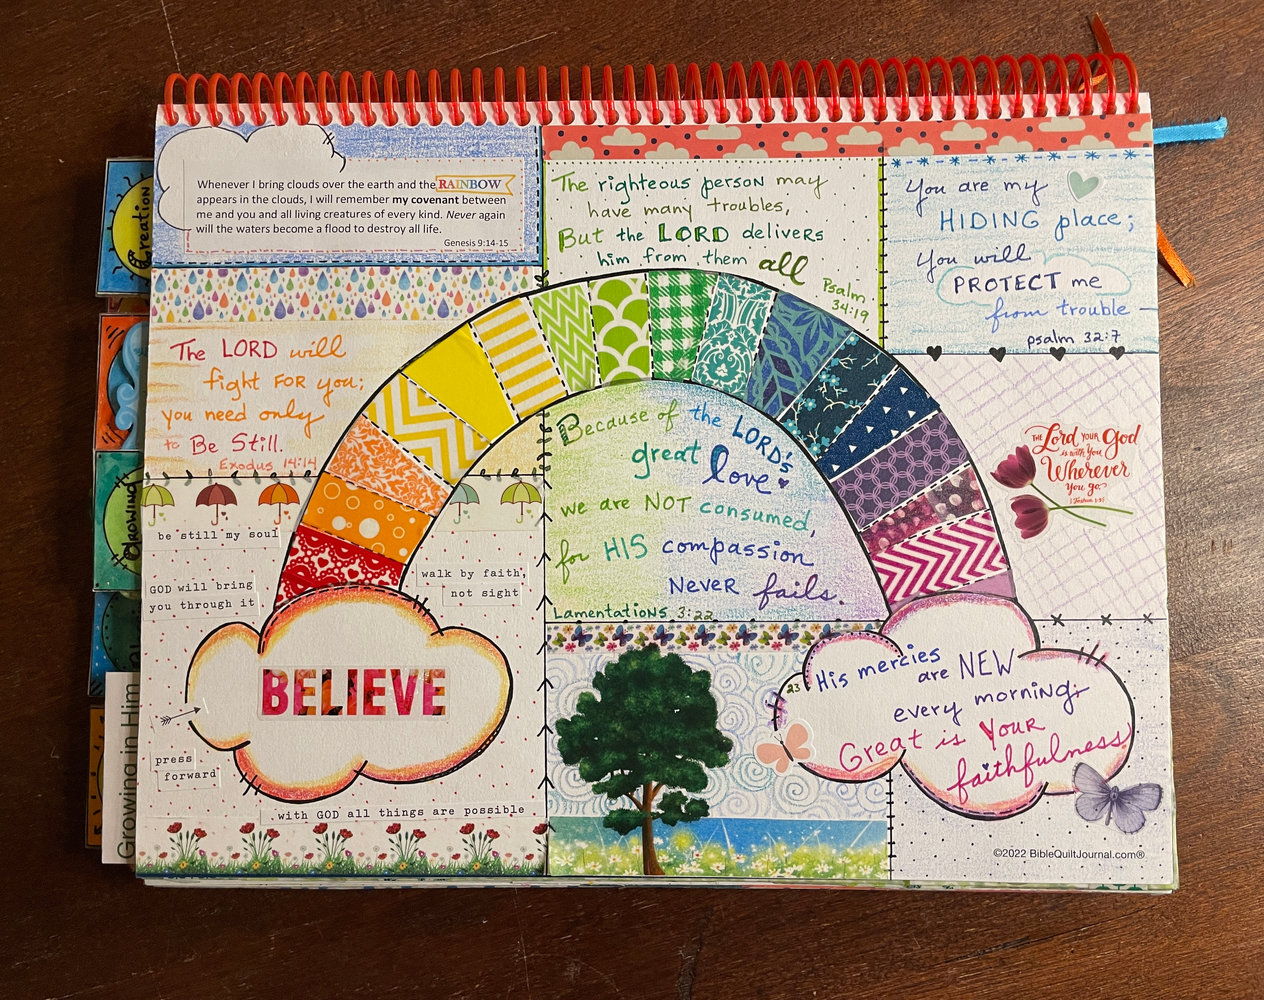 Whenever I bring clouds over the earth and the RAINBOW
appears in the clouds, I will remember my covenant between
me and you and all living creatures of every kind. Never again
will the waters become a flood to destroy all life.
Genesis 9:14-15
The righteous person may
have many troubles,
But the LORD delivers
him from them all
Psalm
34:19
You are my
HIDING place;
You will
PROTECT me
from trouble
psalm 32:7
The LORD will
fight FOR you;
you need only
to Be Still.
Exodus 14:14
Because of the LORD's
great love
we are NOT consumed,
for HIS compassion
NEVER fails.
Lamentations 3:22
THE Lord your God
is with You
Wherever
you go.
Joshua 1:9
be still my soul
GOD will bring
you through it
walk by faith,
not sight
BELIEVE
press
forward
with GOD all things are possible
23 His mercies
are NEW
every morning;
Great is YOUR
faithfulness
©2022 BibleQuiltJournal.com®
Creation
Growing
Growing in Him